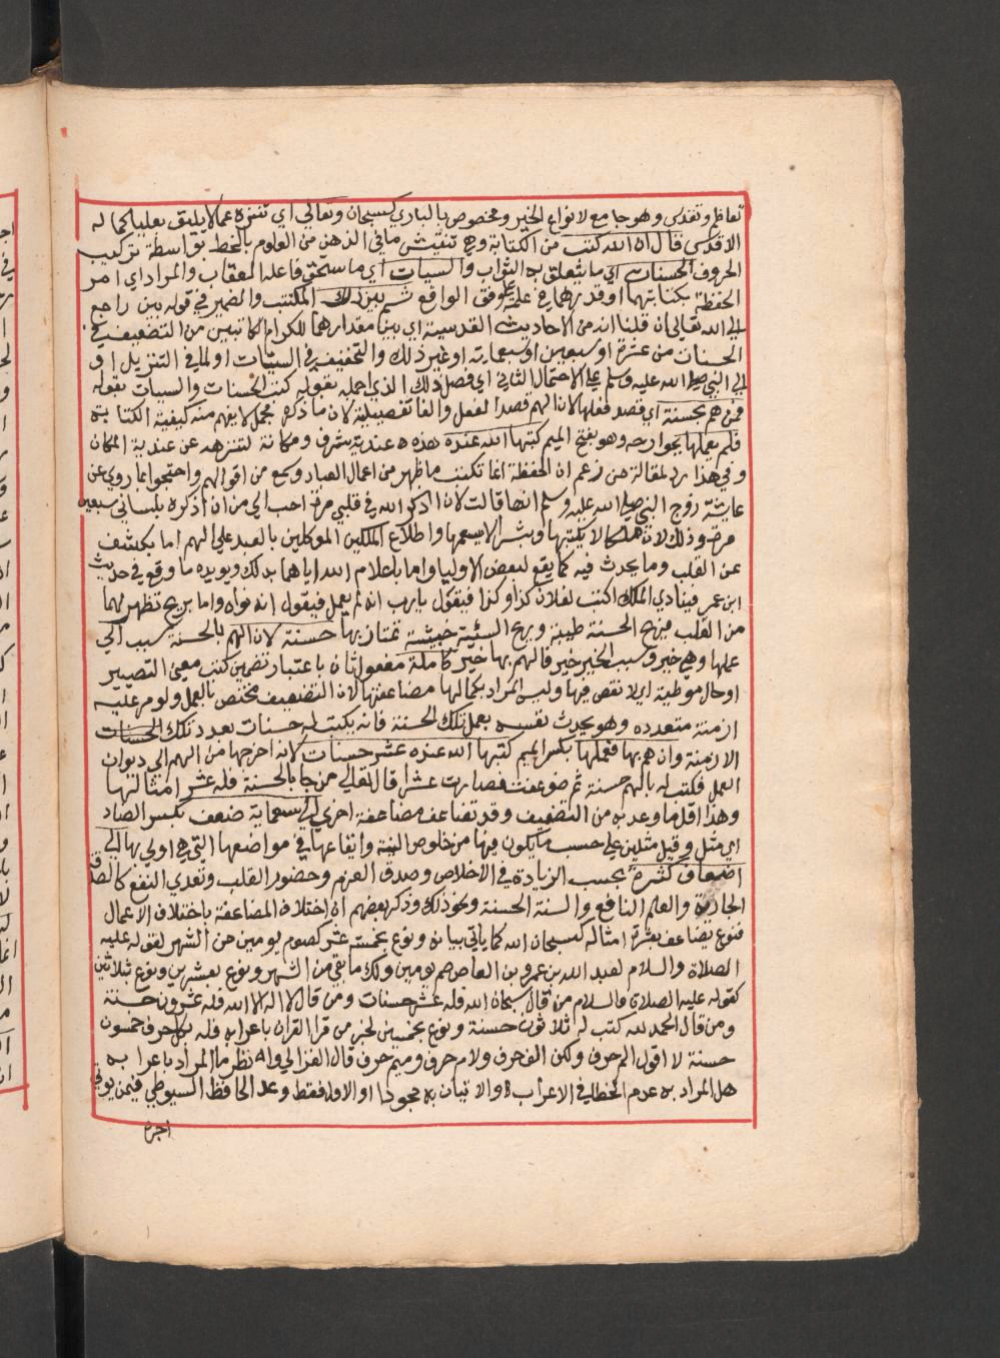 تعاظم وتقدس وهو جامع لانواع الخير ومخصوص بالباري كسبحان وتعالي اي تنزه عما لا يليق بعلي كماله
الاقدس قال ان الله كتب من الكتابة وهي تنقيش ما في الذهن من العلوم بالخط بواسطة تركيب
الحروف الحسنات اي ما يتعلق به الثواب والسيات اي ما يستحق فاعله العقاب والمراد اي امر
الحفظة بكتابتهما او قدرهما في علمه علي وفق الواقع ثم بين ذلك المكتتب والضمير في قوله بين راجع
الي الله تعالي ان قلنا انه من الاحاديث القدسية اي بين مقدارهما للكرام الكاتبين من التضعيف في
الحسنات من عشرة او سبعين او سبعماية او غير ذلك والتخفيف في السيات او لما في التنزيل او
الي النبي صلي الله عليه وسلم علي الاحتمال الثاني اي فصل ذلك الذي اجمله بقوله كتب الحسنات والسيات بقوله
فمن هم بحسنة اي قصد فعلها لان الهم قصد الفعل والفا تفصيلية لان ما ذكره مجمل لا يفهم منه كيفية الكتابة
فلم يعملها بجوارحه وهو بفتح الميم كتبها الله عنده هذه عندية شرف ومكانة لتنزهه عن عندية المكان
وفي هذا رد لمقالة من زعم ان الحفظة انما تكتب ما ظهر من اعمال العباد وسمع من اقوالهم واحتجوا بما روي عن
عايشة زوج النبي صلي الله عليه وسلم انها قالت لان اذكر الله في قلبي مرة احب الي من ان اذكره بلساني سبعين
مرة وذلك لان ملكا لا يكتبها وبشرا لا يسمعها واطلاع الملكين الموكلين بالعبد علي الهم اما بكشف
عن القلب وما يحدث فيه كما يقع لبعض الاوليا واما باعلام الله اياهما بذلك ويويده ما وقع في حديث
ابن عمر فينادي الملك اكتب لفلان كذا وكذا فيقول يارب انه لم يعمل فيقول انه نواه واما بريح تظهر لهما
من القلب فريح الحسنة طيبة وريح السيئة خبيثة تمتاز بها حسنة لان الهم بالحسنة سبب الي
عملها وهي خير وسبب الخير خير فالهم بها خير كاملة مفعول ثان باعتبار تضمين كتب معني التصيير
او حال موطية اي لا نقص فيها وليس المراد بكمالها مضاعفتها لان التضعيف مختص بالعمل ولو مر عليه
ازمنة متعدده وهو يحدث نفسه بعمل تلك الحسنة فانه يكتب له حسنات بعدد تلك الحسنات
الازمنة وان هم بها فعملها بكسر الميم كتبها الله عنده عشر حسنات لانه اخرجها من الهم الي ديوان
العمل فكتب له بالهم حسنة ثم ضوعفت فصارت عشرا قال تعالي من جا بالحسنة فله عشر امثالها
وهذا اقل ما وعد به من التضعيف وقد تضاعف مضاعفة اخري الي سبعماية ضعف بكسر الضاد
اي مثل وقيل مثلين علي حسب ما يكون فيها من خلوص النية وايقاعها في مواضعها التي هي اولي بها الي
اضعاف كثيرة بحسب الزيادة في الاخلاص وصدق العزم وحضور القلب وتعدي النفع كالصدقة
الجارية والعلم النافع والسنة الحسنة ونحو ذلك وذكر بعضهم ان اختلاف المضاعفة باختلاف الاعمال
فنوع يضاعف بعشرة امثاله كسبحان الله كما ياتي بيانه ونوع بخمسة عشر كصوم يومين من الشهر لقوله عليه
الصلاة والسلام لعبد الله بن عمرو بن العاص صم يومين ولك ما بقي من الشهر ونوع بعشرين ونوع بثلاثين
كقوله عليه الصلاة والسلام من قال سبحان الله فله عشر حسنات ومن قال لا اله الا الله فله عشرون حسنة
ومن قال الحمد لله كتب له ثلاثون حسنة ونوع بخمسين لخبر من قرا القران باعرابه فله بكل حرف خمسون
حسنة لا اقول الم حرف ولكن الف حرف ولام حرف وميم حرف قال الغزالي وانظر ما المراد باعرابه
هل المراد به عدم الخطا في الاعراب والاتيان به مجودا او الاول فقط وعد الحافظ السيوطي فيمن يوتي
اجره